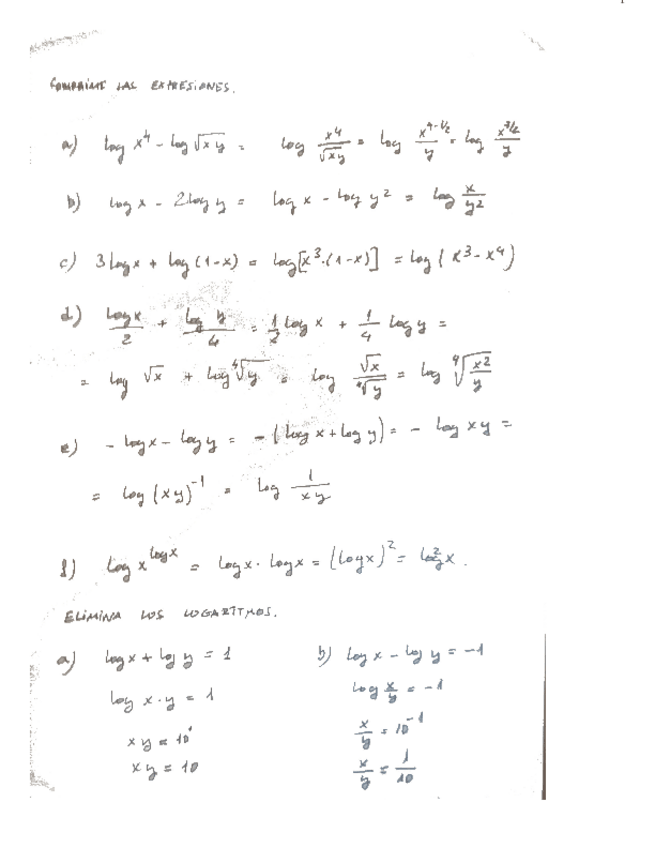 COMPRIME LAS EXPRESIONES.
a) log x⁴ - log √xy = log x⁴/√xy = log x^(4-1/2)/y = log x^(7/2)/y
b) log x - 2 log y = log x - log y² = log x/y²
c) 3 log x + log (1-x) = log [x³·(1-x)] = log (x³-x⁴)
d) log x/2 + log y/4 = 1/2 log x + 1/4 log y =
= log √x + log ⁴√y = log √x/⁴√y = log ⁴√(x²/y)
e) - log x - log y = - (log x + log y) = - log xy =
= log (xy)⁻¹ = log 1/xy
f) log x^(log x) = log x · log x = (log x)² = log² x.
ELIMINA LOS LOGARITMOS.
a) log x + log y = 1
log x·y = 1
xy = 10¹
xy = 10
b) log x - log y = -1
log x/y = -1
x/y = 10⁻¹
x/y = 1/10